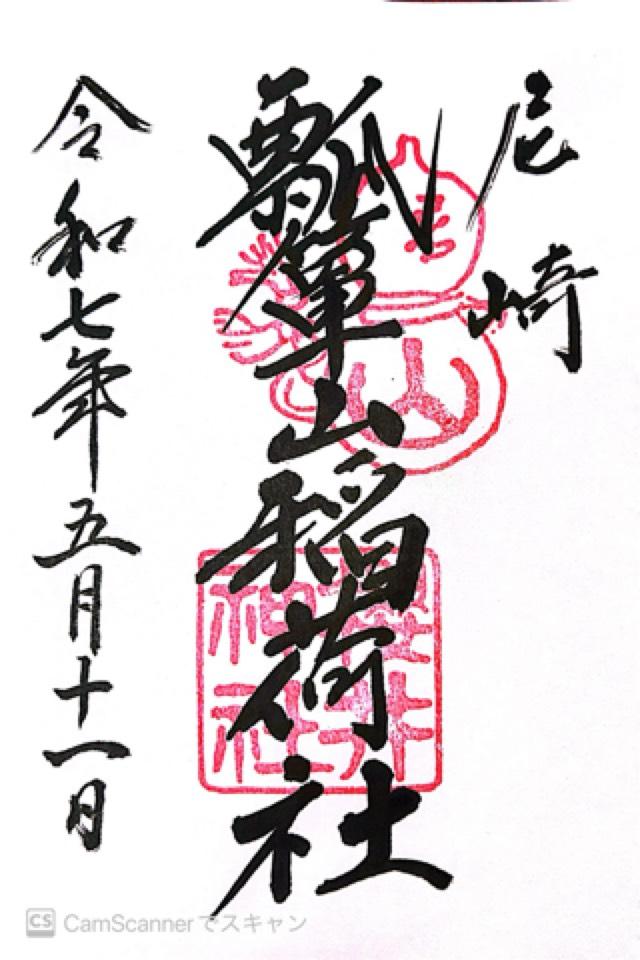 尼崎
瓢箪山稲荷社
令和七年五月十一日
山
神社
CS CamScannerでスキャン